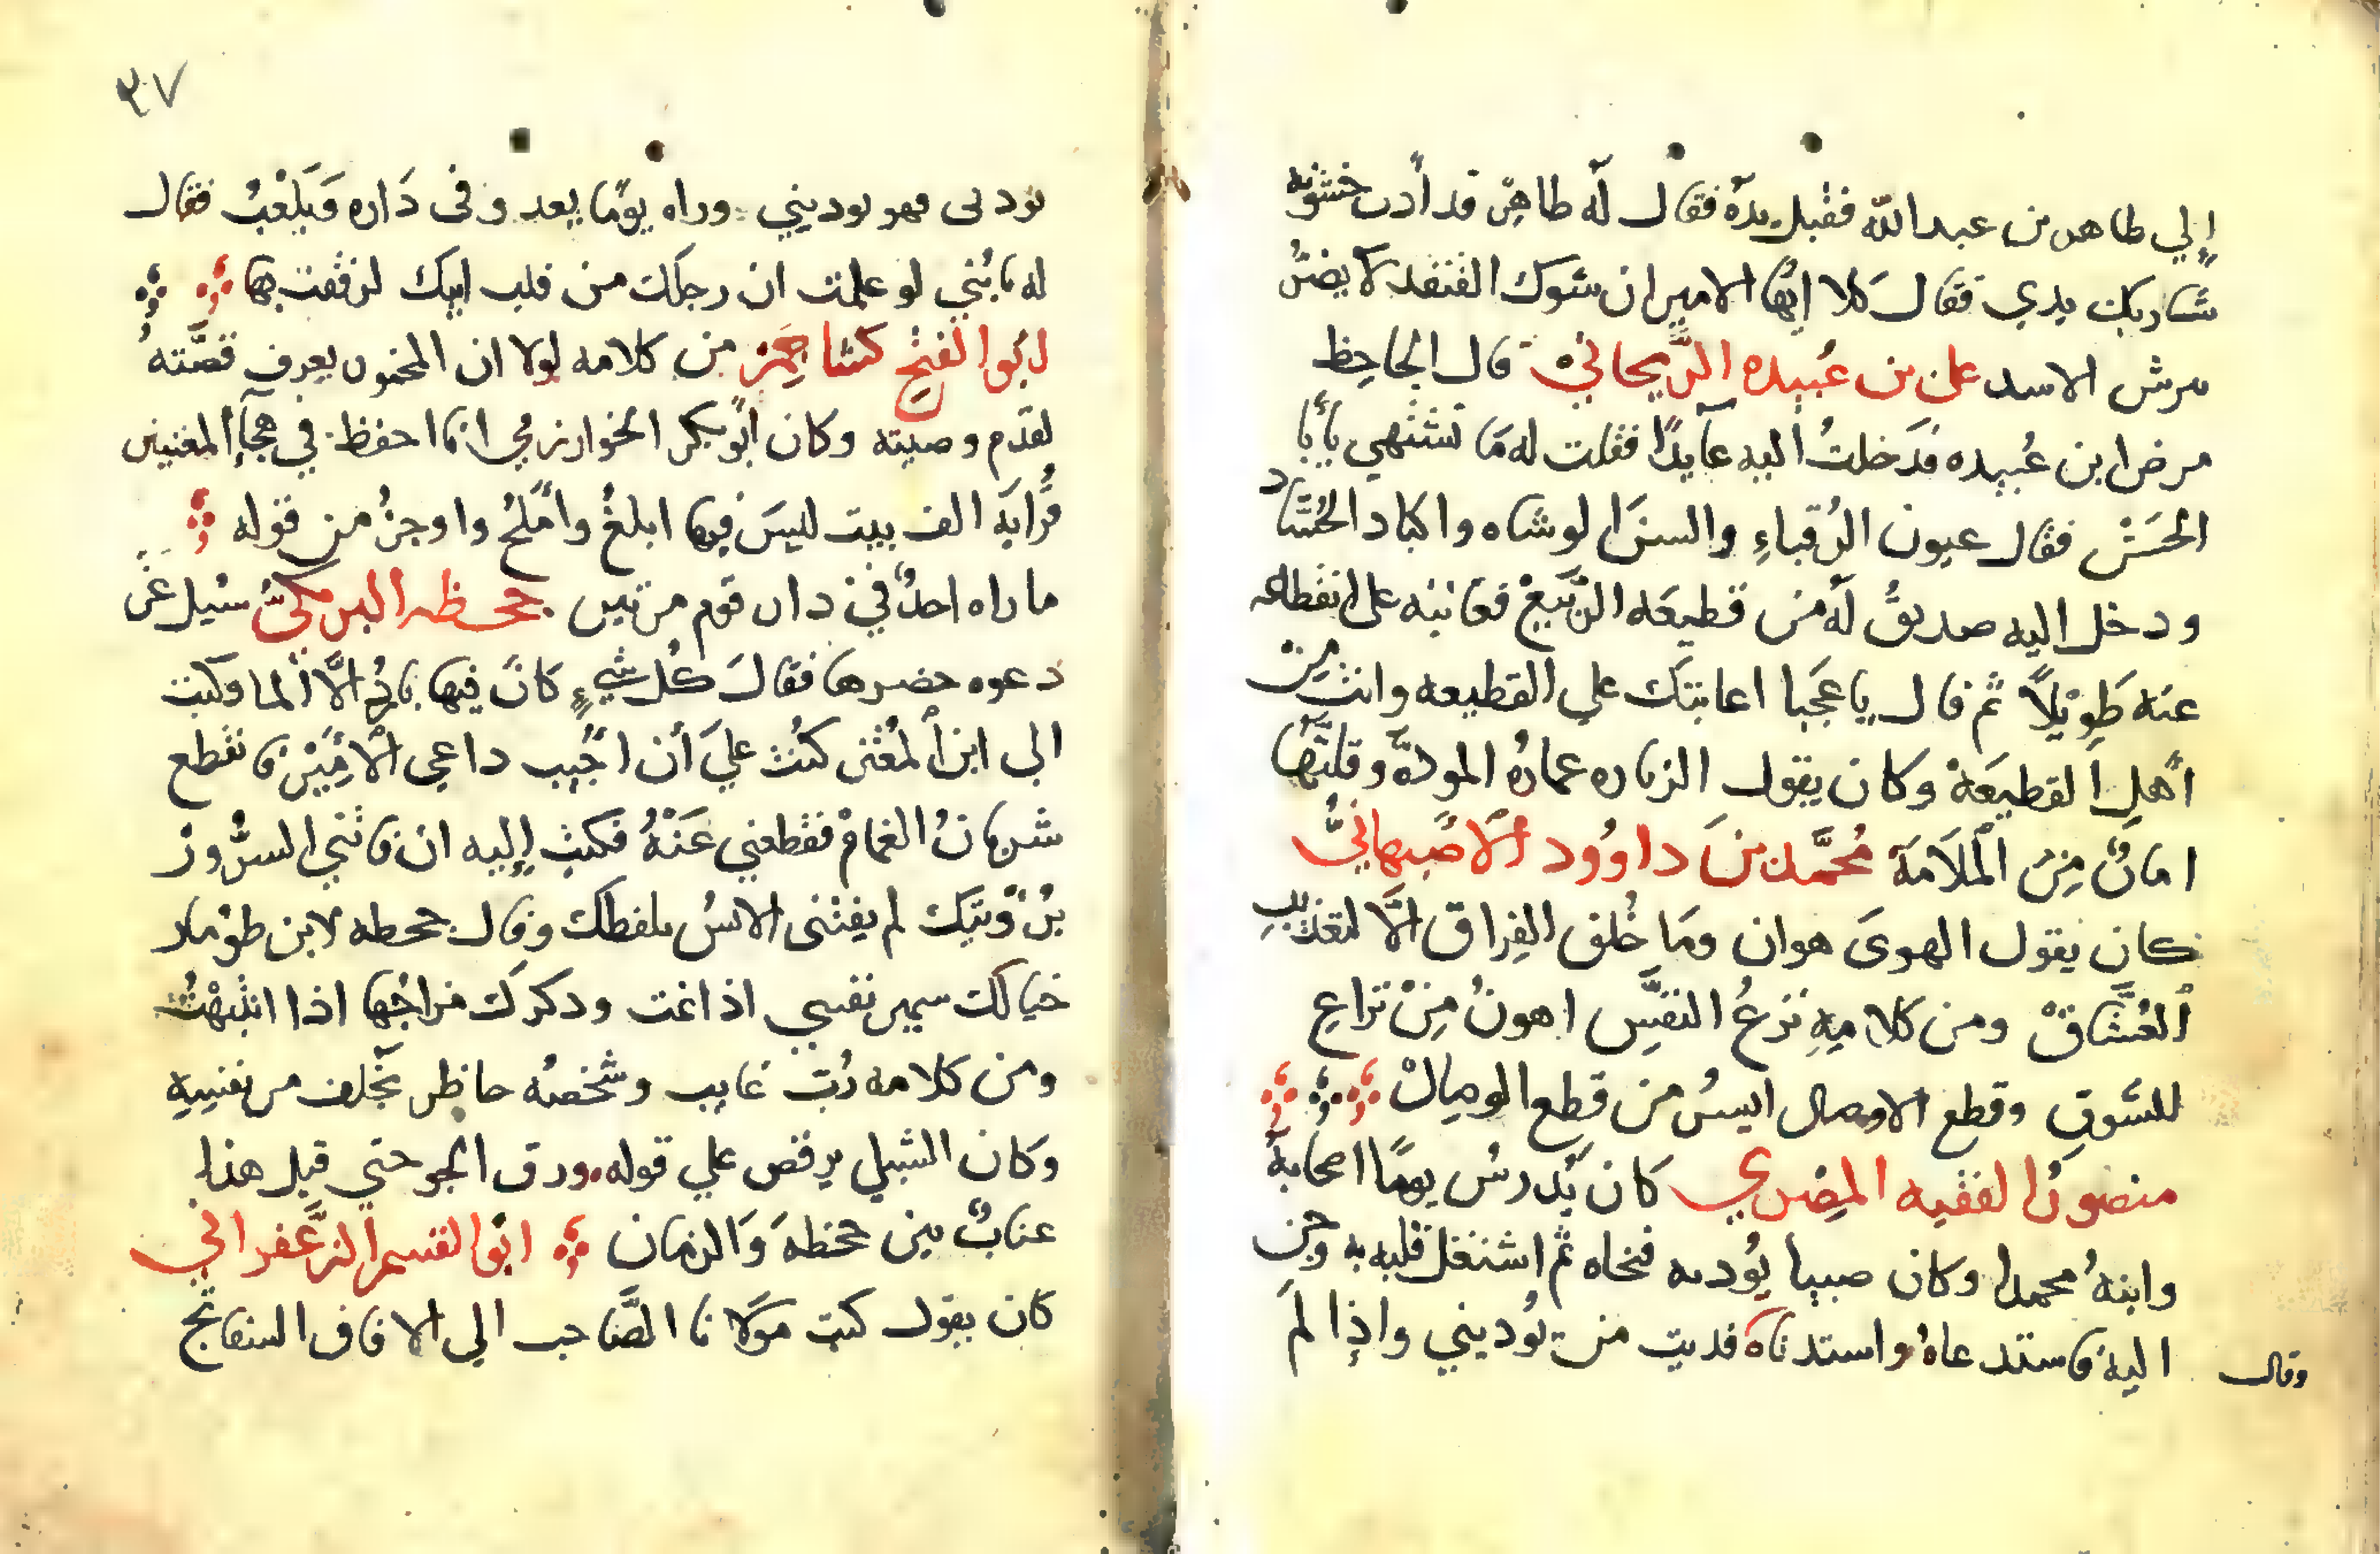 إلي طاهر بن عبد الله فقبل يده فقال له طاهر قد أذت خشونة
شاربك يدي فقال كلا ايها الامير ان شوك القنفد لا يضر
برش الاسد علي بن عُبيده الرَّيحاني قال الجاحظ
مرض ابن عُبيده فدَخلتُ اليه عآيدًا فقلت له مَا تشتهي يأبا
الحسَن فقال عيون الرُقباءِ والسن الوشاه واكباد الحُسَّاد
ودخل اليه صديقُ له من قطيعَه الرَّبيعْ فعاتبه على انقطاعه
عنه طَوِيْلاً ثم قال يا عَجَبا اعاتبتك علي القطيعه وانت مِن
أهل القطيعَة وكان يقول الزياره عمارهُ المودَّه وقلتَّها
امانٌ مِنَ الْمَلَامَة مُحمَّد بنَ داوُود الأصبهانيُّ
كان يقول الهوىَ هوان ومَا خُلق الفِراق الَّا لتعذيبِ
اَلعُشَّاقْ ومن كلامِهِ نزعُ النفسِ اهونُ مِنْ نزاعِ
للشوقِ وقطع الاوصال ايسرُ من قطع الوصالْ
منصورُ الفقيه المِصْري كَان يُدرسُ يومًا اصحابهُ
وابنهُ محمدا وكان صبيا يُوديه فنحاه ثم اشتغل قلبه به وحن
اليه فاستدعاهُ واستدناه فديت من يُوديني واذِا لمَ
وقال
يودني فهو يوديني وراه يومًا يعدو في دَاره وَيَلْعَبُ فقال
له يا بُني لو علمت ان رجلك من قلب ابيك لرفقت بها
ابُو الفتح كشاجم من كلامه لولا ان المخمور يعرف قصَّتهُ
لقدّم وصيته وكان أبو بكر الخوارزمي انما احفظ في هجآء المغنيين
قُرابَه الف بيت ليسَ فيها ابلغُ وأملَحُ واوجزُ من قوله
ماراه احدٌ في دار قوم مرتين جحظه البرمكيُّ سئيل عَن
دعوه حضرها فقالَ كُل شيءٍ كَانَ فيها باردُ الَّا ألما وكتبت
الى ابن اَلمُعْتز كُنْتُ عليَ أن اجُيب داعي الْأمِيْرْ فانقطع
شريانُ الغمامْ فقطعني عَنْهُ فكتب إليه ان فاتني السرُّورُ
برُؤيتك لم يفتنى الانسُ بلفظك وقال جحطه لابن طوْمار
خيالك سمير نفسي اذا غت ودكركَ مزاجُها اذا انتبهْتُ
ومن كلامه رُبّ غايب وشخصُه حاظر نخلف من نفسِهِ
وكان الشبلي يرقص علي قوله ورق الجو حتي قيل هذا
عتابٌ بين جحظة وَالزمان ابُو القسم الزَعفراني
كان يقول كتب مَوَلانا الصَّاحب الي الافاق السفاتج